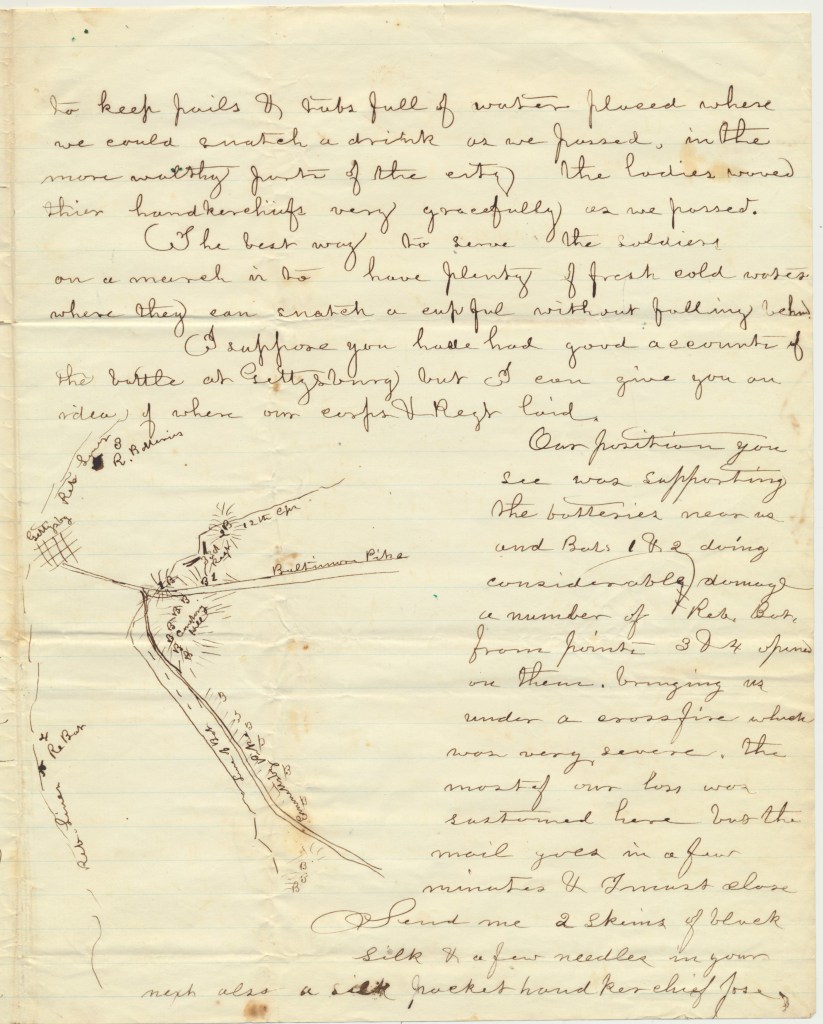 to keep pails & tubs full of water placed where
we could snatch a drink as we passed. in the
more walthy parts of the city the ladies waved
thier handkerchiefs very gracefully as we passed.
The best way to serve the soldiers
on a march is to have plenty of fresh cold water
where they can snatch a cupful without falling behind
I suppose you have had good accounts of
the battle at Gettysburg but I can give you an
idea of where our corps & Regt laid.
Our position you
see was supporting
the batteries near us
and Bat. 1 & 2 doing
considerable damage
a number of Reb. Bat.
from points 3 & 4 opened
on them. bringing us
under a crossfire which
was very severe. the
most of our loss was
sustained here but the
mail goes in a few
minutes & I must close
Send me 2 skeins of black
silk & a few needles in your
next also a silk pocket handkerchief Jose
Reb Lines
3
R. Batteries
Getts
burg
12th Cps
2 B
Regt
B 1
Baltimore Pike
B
B
B
B
Cemetery
Hill
B
B
B
B
B
B
B
4
Re Bat
Reb. Lines